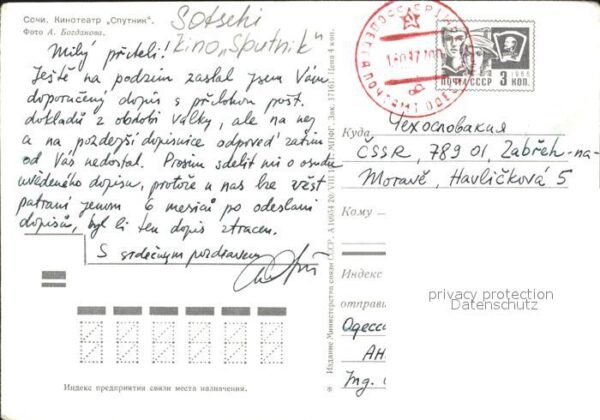 Сочи. Кинотеатр „Спутник“.
Фото А. Богданова.
Sotschi
Kino „Sputnik“
Milý příteli!
Ještě na podzim zaslal jsem Vám
doporučený dopis s přílohou pošt.
dokladů z období války, ale na něj
a na pozdější dopisnice odpověď zatím
od Vás nedostal. Prosím sdělit mi o osudu
uvedeného dopisu, protože u nás lze vést
pátrání jenom 6 měsíců po odeslání
dopisů, byl li ten dopis ztracen.
S srdečným pozdravem
Индекс предприятия связи места назначения.
Издание Министерства связи СССР.
Цена 4 коп.
ПОЧТА СССР
1966
3 КОП.
Куда
Чехословакия
ČSSR, 789 01, Zábřeh-na-
Moravě, Havlíčková 5
Кому
Индекс
отправи
privacy protection
Datenschutz
Одесса
Ing.